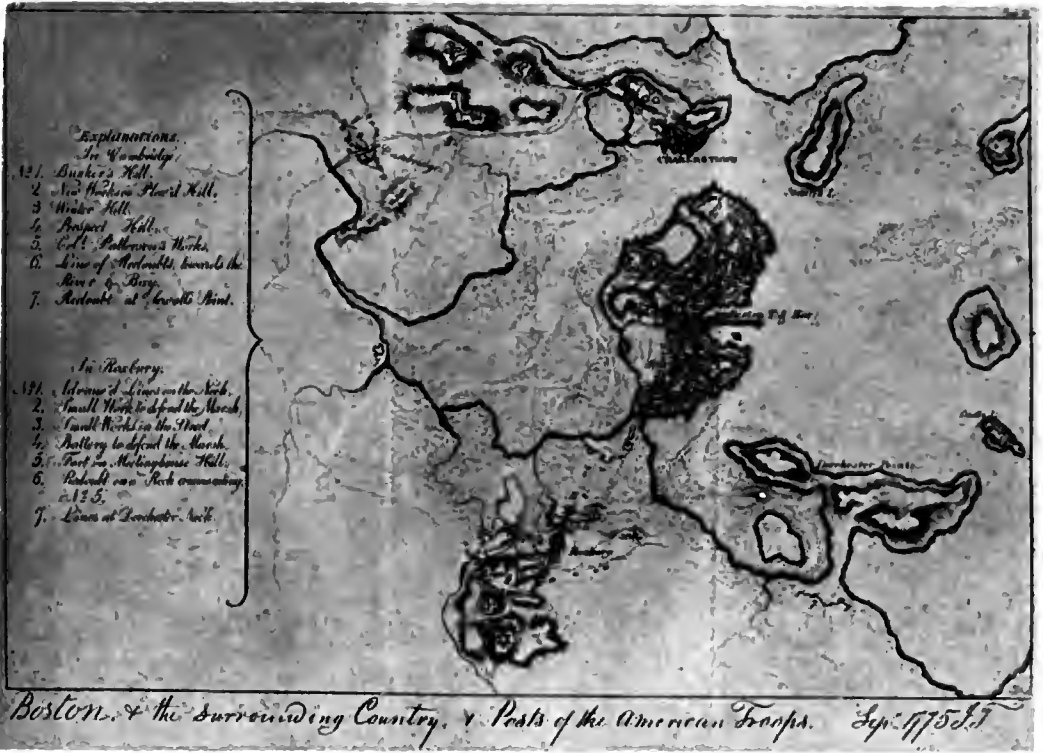 Explanations.
In Cambridge.
Nº 1. Bunker's Hill.
2 New Works on Plow'd Hill.
3 Winter Hill.
4. Prospect Hill.
5. Col. Patterson's Works.
6. Line of Redoubts, towards the
River & Bay.
7. Redoubt at Sewall's Point.
In Roxbury.
Nº 1. Advanc'd Lines on the Neck.
2. Small Work to defend the Marsh.
3. Small Works in the Street.
4. Battery to defend the Marsh.
5. Fort on Meetinghouse Hill.
6. Redoubt on a Rock commanding
Nº 5.
7. Lines at Dorchester Neck.
CHARLESTOWN
Dorchester Points
Roxbury
Boston, & the surrounding Country, & Posts of the American Troops. Sep. 1775 J T